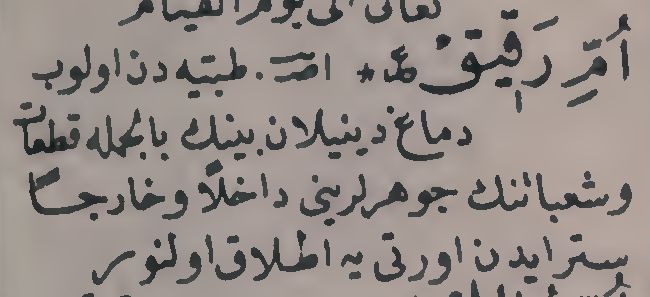 تعالى الى يوم القيام
اُمِّ رَقِيقْ عـ * اصـ. طبيه دن اولوب
دماغ دينيلان بينك بالجمله قطعات
وشعباتنك جوهرلرينى داخلاً وخارجاً
ستر ايدن اورتى يه اطلاق اولنور